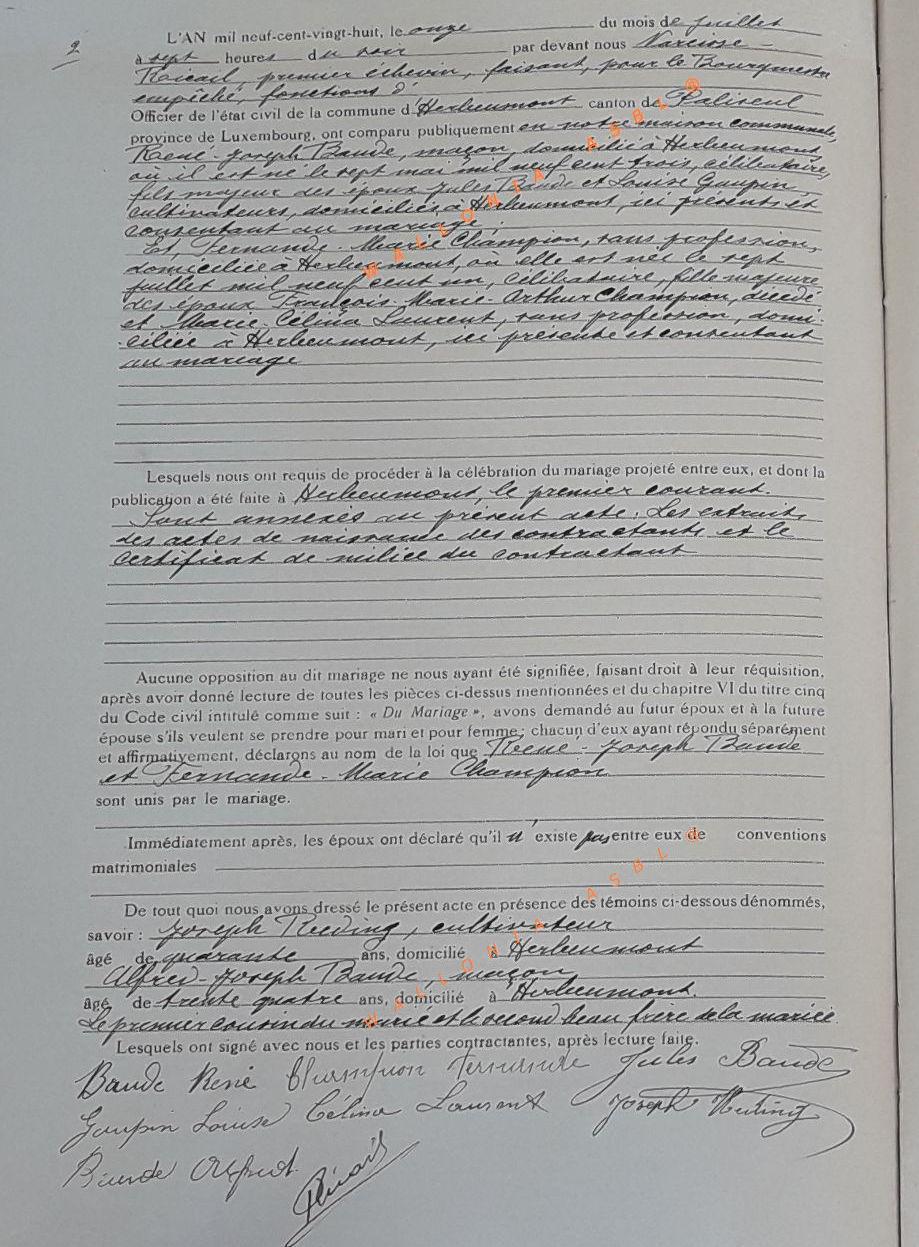 2
L'AN mil neuf-cent-vingt-huit, le onze du mois de juillet
à sept heures du soir par devant nous Narcisse
premier échevin, faisant, pour le Bourgmestre
empêché, fonctions d'
Officier de l'état civil de la commune d'Herbeumont canton de Paliseul
province de Luxembourg, ont comparu publiquement en notre maison communale,
René-Joseph Baude, maçon, domicilié à Herbeumont,
où il est né le sept mai mil neuf cent trois, célibataire,
fils majeur des époux Jules Baude et Louise Gaupin,
cultivateurs, domiciliés à Herbeumont, ici présents et
consentant au mariage.
Et, Fernande-Marie Champion, sans profession,
domiciliée à Herbeumont, où elle est née le sept
juillet mil neuf cent un, célibataire, fille majeure
des époux François-Marie-Arthur Champion, décédé
et Marie-Célina Laurent, sans profession, domi-
ciliée à Herbeumont, ici présente et consentant
au mariage
Lesquels nous ont requis de procéder à la célébration du mariage projeté entre eux, et dont la
publication a été faite à Herbeumont, le premier courant.
Sont annexés au présent acte: Les extraits
des actes de naissance des contractants et le
certificat de milice du contractant
Aucune opposition au dit mariage ne nous ayant été signifiée, faisant droit à leur réquisition,
après avoir donné lecture de toutes les pièces ci-dessus mentionnées et du chapitre VI du titre cinq
du Code civil intitulé comme suit : « Du Mariage », avons demandé au futur époux et à la future
épouse s'ils veulent se prendre pour mari et pour femme; chacun d'eux ayant répondu séparément
et affirmativement, déclarons au nom de la loi que René-Joseph Baude
et Fernande-Marie Champion
sont unis par le mariage.
Immédiatement après, les époux ont déclaré qu'il n'existe pas entre eux de conventions
matrimoniales
De tout quoi nous avons dressé le présent acte en présence des témoins ci-dessous dénommés,
savoir : Joseph cultivateur
âgé de quarante ans, domicilié à Herbeumont
Alfred-Joseph Baude, maçon,
âgé de trente quatre ans, domicilié à Herbeumont.
Le premier cousin du marié et le second beau frère de la mariée.
Lesquels ont signé avec nous et les parties contractantes, après lecture faite.
Baude René Champion Fernande Jules Baude
Gaupin Louise Célina Laurent Joseph
Baude Alfred
WALLONIA ASBL ©
WALLONIA ASBL ©